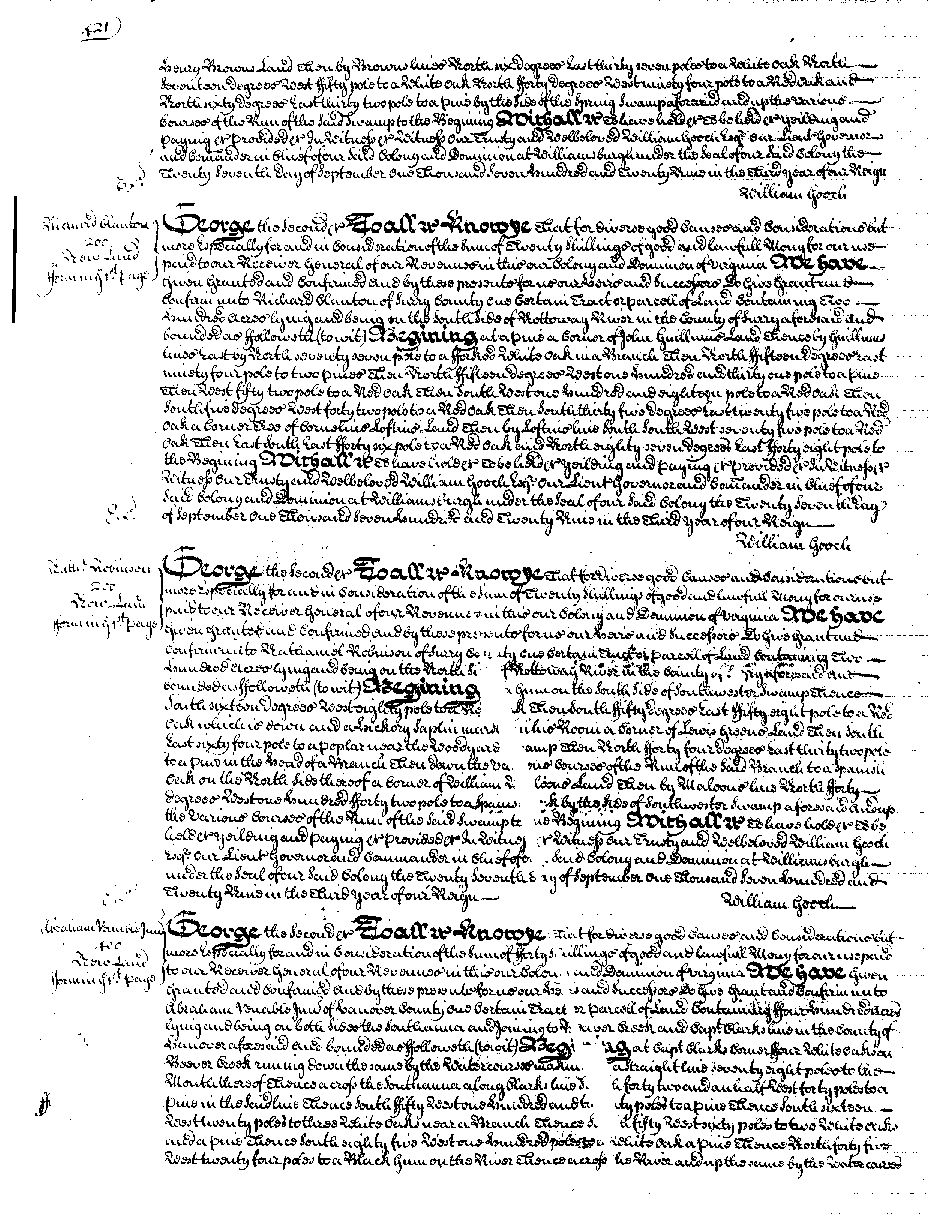 421
Henry Browns Land Then by Browns lines North six degrees East thirty seven poles to a White Oak North
Seventeen degrees West ffifty pole to a White Oak North fforty degrees West ninety four pole to a Red Oak and
North sixty degrees East thirty two pole to a pine by the side of the Spring Swamp aforesaid and up the various
Courses of the Run of the said Swamp to the Begining With all &c To have hold &c To be held &c Yeilding and
Paying &c Provided &c In Witness &c Witness Our Trusty and Welbeloved William Gooch Esqr Our Lieut Governor
and Comander in Chief of our said Colony and Dominion at Williamsburgh under the Seal of our said Colony the
Twenty Seventh Day of September One Thousand Seven hundred and Twenty Nine in the Third Year of our Reign
William Gooch
Richard Blunton
200
New Land
fform in 1st Page
George the Second &c To all &c Know ye That for diverse good Causes and Considerations but
more Especially for and in Consideration of the Sum of Twenty Shillings of good and lawfull Mony for our use
paid to our Receiver General of our Revenues in this our Colony and Dominion of Virginia We have
Given Granted and Confirmed and by these presents for us our heirs and Successors Do Give Grant and
Confirm unto Richard Blunton of Surry County One Certain Tract or parcel of Land Containing Two
hundred Acres lying and being on the South side of Nottoway River in the County of Surry aforesaid and
bounded as ffolloweth (to wit) Begining at a pine a Corner of John Guillims Land Thence by Guillims
lines East by North seventy seven pole to a fforked White Oak in a Branch Then North ffifteen degrees East
ninety four pole to two pines Then North ffifteen degrees West one hundred and thirty one pole to a pine
Then West fifty two pole to a Red Oak Then South West one hundred and eighteen pole to a Red Oak Then
South five degrees West forty two pole to a Red Oak Then South thirty five degrees East twenty five pole to a Red
Oak a Corner Tree of Cornelius Loftins Land Then by Loftins line South South West seventy five pole to a Red
Oak Then East South East fforty six pole to a Red Oak and North eighty seven degrees East fforty eight pole to
the Begining With all &c To have hold &c To be held &c Yeilding and Paying &c Provided &c In Witness &c
Witness Our Trusty and Welbeloved William Gooch Esqr Our Lieut Governor and Comander in Chief of our
said Colony and Dominion at Williamsburgh under the Seal of our said Colony the Twenty Seventh Day
of September One Thousand Seven hundred and Twenty Nine in the Third Year of our Reign
William Gooch
Nathl Robinson
200
New Land
fform in 1st Page
George the Second &c To all &c Know ye That for diverse good Causes and Considerations but
more Especially for and in Consideration of the Sum of Twenty Shillings of good and lawfull Mony for our use
paid to our Receiver General of our Revenues in this our Colony and Dominion of Virginia We have
Given Granted and Confirmed and by these presents for us our heirs and Successors Do Give Grant and
Confirm unto Nathaniel Robinson of Surry County One Certain Tract or parcel of Land Containing Two
hundred Acres lying and being on the North Nottoway River in the County of Surry aforesaid and
bounded as ffolloweth (to wit) Begining a Gum on the South side of Southwester Swamp Thence
South sixteen degrees West eighty pole to a Then South ffifty degrees East ffifty eight pole to a Red
Oak which is down and a hickory Saplin mark its Room a Corner of Lewis Greens Land Then South
East sixty four pole to a poplar near the Woodyard amp Then North fforty four degrees East thirty two pole
to a pine in the head of a Branch Then down the Courses of the Run of the said Branch to a Spanish
Oak on the North side thereof a Corner of William Land Then by Malones line North fforty
degrees West one hundred fforty two pole to a by the side of Southwester Swamp aforesaid and up
the various Courses of the Run of the said Swamp to Begining With all &c To have hold &c To be
held &c Yeilding and Paying &c Provided &c In Witness &c Witness Our Trusty and Welbeloved William Gooch
Esqr Our Lieut Governor and Commander in Chief of our said Colony and Dominion at Williamsburgh
under the Seal of our said Colony the Twenty Seventh Day of September One Thousand Seven hundred and
Twenty Nine in the Third Year of our Reign
William Gooch
Abraham Venable Junr
400
New Land
fform in 1st Page
George the Second &c To all &c Know ye That for diverse good Causes and Considerations but
more Especially for and in Consideration of the Sum of fforty illings of good and lawfull Mony for our use paid
to our Receiver General of our Revenues in this our Colon and Dominion of Virginia We have Given
Granted and Confirmed and by these presents for us our and Successors Do Give Grant and Confirm unto
Abraham Venable Junr of Hanover County One Certain Tract or Parcel of Land Containing ffour hundred Acres
lying and being on both sides the Southanna and Joining to River Creek and Capt Clarks line in the County of
Hanover aforesaid and bounded as ffolloweth (to wit) Begi ng at Capt Clarks Corner ffour White Oaks on
Beever Creek running down the same by the Watercourses makin a straight line seventy eight poles to the
Mouth thereof Thence across the Southanna along Clarks line fforty two and an half West forty poles to a
Pine in the said line Thence South ffifty West one hundred and ty poles to a pine Thence South sixteen
West twenty poles to three White Oaks near a Branch Thence fifty West sixty poles to two White Oaks
and a pine Thence South eighty five West one hundred poles to a White Oak a Pine Thence North forty five
West twenty four poles to a Black Gum on the River Thence across he River and up the same by the Watercourses